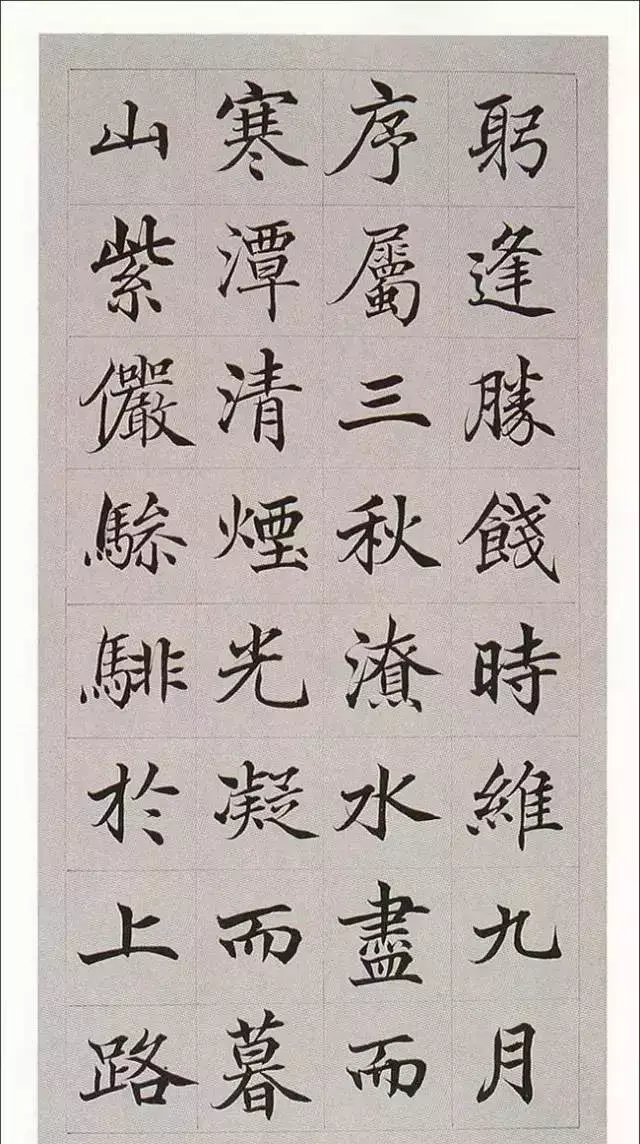 躬逢勝餞時維九月
序屬三秋潦水盡而
寒潭清煙光凝而暮
山紫儼驂騑於上路